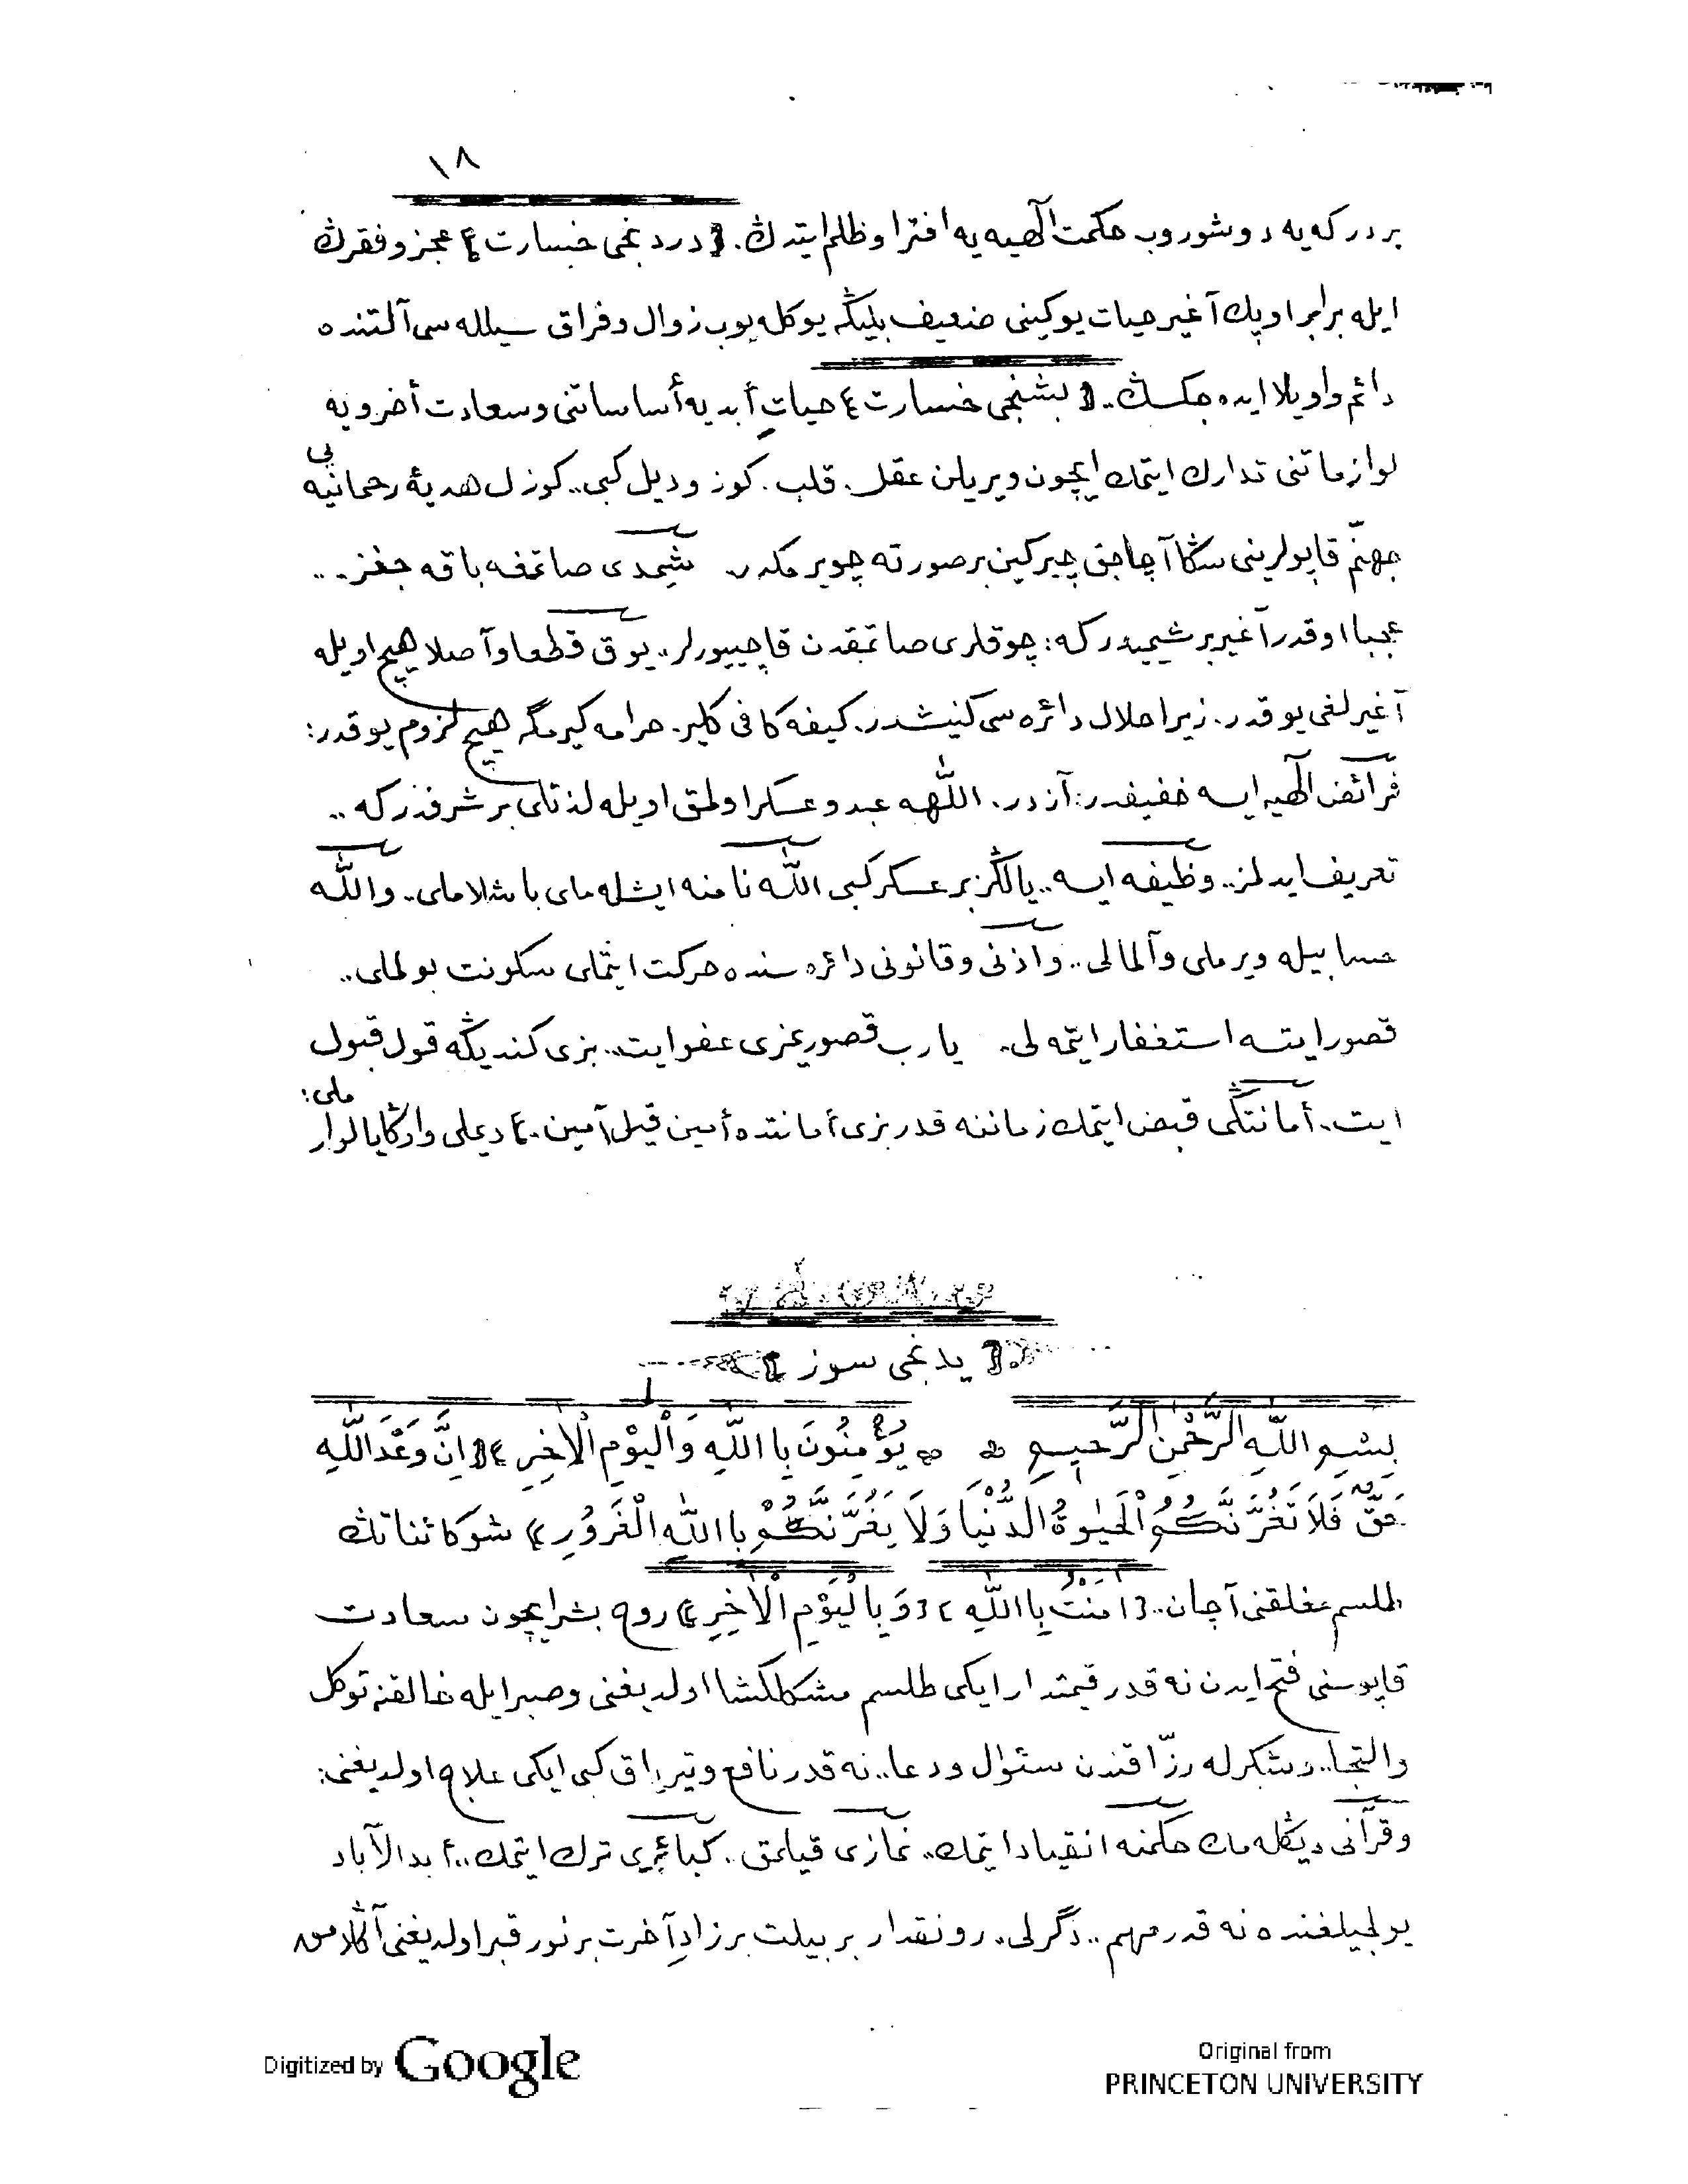 ١٨
بر دركه‌يه دوشوروب حكمت الٓهيه‌يه افترا و ظلم ايتدڭ. ﴿دردنجى خسارت﴾ عجز و فقرڭ
ايله برابر او پك آغير حيات يوكينى ضعيف بليڭه يوكله‌يوب زوال و فراق سيلله‌سى آلتنده
دائم واويلا ايده‌جكسڭ.. ﴿بشنجى خسارت﴾ حياتِ أبديه أساساتنى و سعادت أخرويه
لوازماتنى تدارك ايتمك ايچون ويريلن عقل. قلب. كوز و ديل كبى.. كوزل هديۀ رحمانيه‌يى
جهنّم قاپولرينى سڭا آچاجق چيركين بر صورته چويرمكدر. شيمدى صاتمغه باقه‌جغز...
عجبا او قدر آغير بر شيميدر كه: چوقلرى صاتمقدن قاچييورلر.. يوق قطعا و آصلا هيچ اويله
آغيرلغى يوقدر. زيرا حلال دائره‌سى كنيشدر. كيفه كافى كلير. حرامه كيرمگه هيچ لزوم يوقدر:
فرائض الٓهيه ايسه خفيفدر: آزدر. اللّٰهه عبد و عسكر اولمق اويله لذتلى بر شرفدر كه..
تعريف ايدلمز.. وظيفه ايسه.. يالڭز بر عسكر كبى اللّٰه نامنه ايشله‌ملى باشلاملى.. واللّٰه
حسابيله ويرملى و آلمالى.. و اذنى و قانونى دائره‌سنده حركت ايتملى سكونت بولملى..
قصور ايتسه استغفار ايتمه‌لى. يا رب قصوريمزى عفو ايت.. بزى كنديڭه قول قبول
ايت.. أمانتڭى قبض ايتمك زماننه قدر بزى أمانتده أمين قيل آمين. ﴾ ديملى و اوڭا يالوارملى:
﴿يدنجى سوز﴾
بِسْمِ اللّٰهِ الرَّحْمٰنِ الرَّحِيمِ يُؤْمِنُونَ بِا اللّٰهِ وَالْيَوْمِ الْاٰخِرِ ﴾ ﴿اِنَّ وَعْدَ اللّٰهِ
حَقٌّ فَلَا تَغُرَّنَّكُمُ الْحَيٰوةُ الدُّنْيَا وَلَا يَغُرَّنَّكُمْ بِا اللّٰهِ الْغَرُورِ﴾ شو كائناتڭ
طلسم مغلقنى آچان.. ﴿اٰمَنْتُ بِا اللّٰهِ﴾ ﴿وَ بِا لْيَوْمِ الْاٰخِرِ﴾ روح بشر ايچون سعادت
قاپوسنى فتح ايدن نه قدر قيمتدار ايكى طلسم مشكلكشا اولديغنى و صبر ايله خالقنه توكل
و التجا.. و شكرله رزّاقندن سئوال و دعا.. نه قدر نافع و ترياق كبى ايكى علاج اولديغنى:
و قرآنى ديڭله‌مك حكمنه انقياد ايتمك.. نمازى قيلمق. كبائرى ترك ايتمك.. أبد الآباد
يولجيلغنده نه قدر مهم.. دگرلى. رونقدار بر بيلت بر زادِ آخرت بر نور قبر اولديغنى آڭلامق
Digitized by Google
Original from
PRINCETON UNIVERSITY